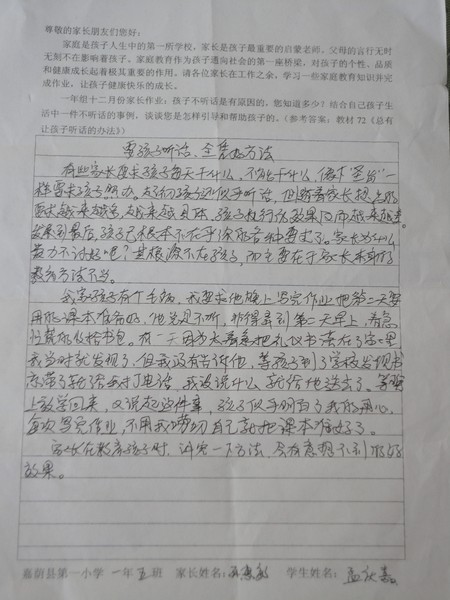 尊敬的家长朋友们您好：
家庭是孩子人生中的第一所学校，家长是孩子最重要的启蒙老师。父母的言行无时
无刻不在影响着孩子。家庭教育作为孩子通向社会的第一座桥梁，对孩子的个性、品质
和健康成长起着极其重要的作用。请各位家长在工作之余，学习一些家庭教育知识并完
成作业。让孩子健康快乐的成长。
一年组十二月份家长作业：孩子不听话是有原因的，您知道多少？结合自己孩子生
活中一件不听话的事例，谈谈您是怎样引导和帮助孩子的。（参考答案：教材 72《总有
让孩子听话的办法》）
要孩子听话，全凭好方法
有些家长要求孩子每天干什么，不能干什么，像下"圣旨"一
样要求孩子照办。起初孩子似乎听话，但随着家长提出的
要求越来越多，越来越具体，孩子执行的效果却越来越差
发展到最后，孩子已根本不在乎你的各种要求了。家长为什么
费力不讨好呢？其根源不在孩子，而主要在于家长采取了
教育方法不当。
我家孩子有个毛病，我要求他晚上写完作业把第二天要
用的课本准备好，他总是不听，非得等到第二天早上，着急
忙慌的收拾书包。有一天因为太着急把礼仪书落在了家里
我当时就发现了，但我没有告诉他，等孩子到了学校发现书
忘带了就给我打电话，我没说什么就给他送去了。等晚
上放学回来，又说起这件事，孩子似乎明白了我的用心，
每次写完作业，不用我唠叨自己就把课本准备好了。
家长在教育孩子时，讲究一下方法，会有意想不到的好
效果。
嘉荫县第一小学 一年五班 家长姓名： 学生姓名：孟